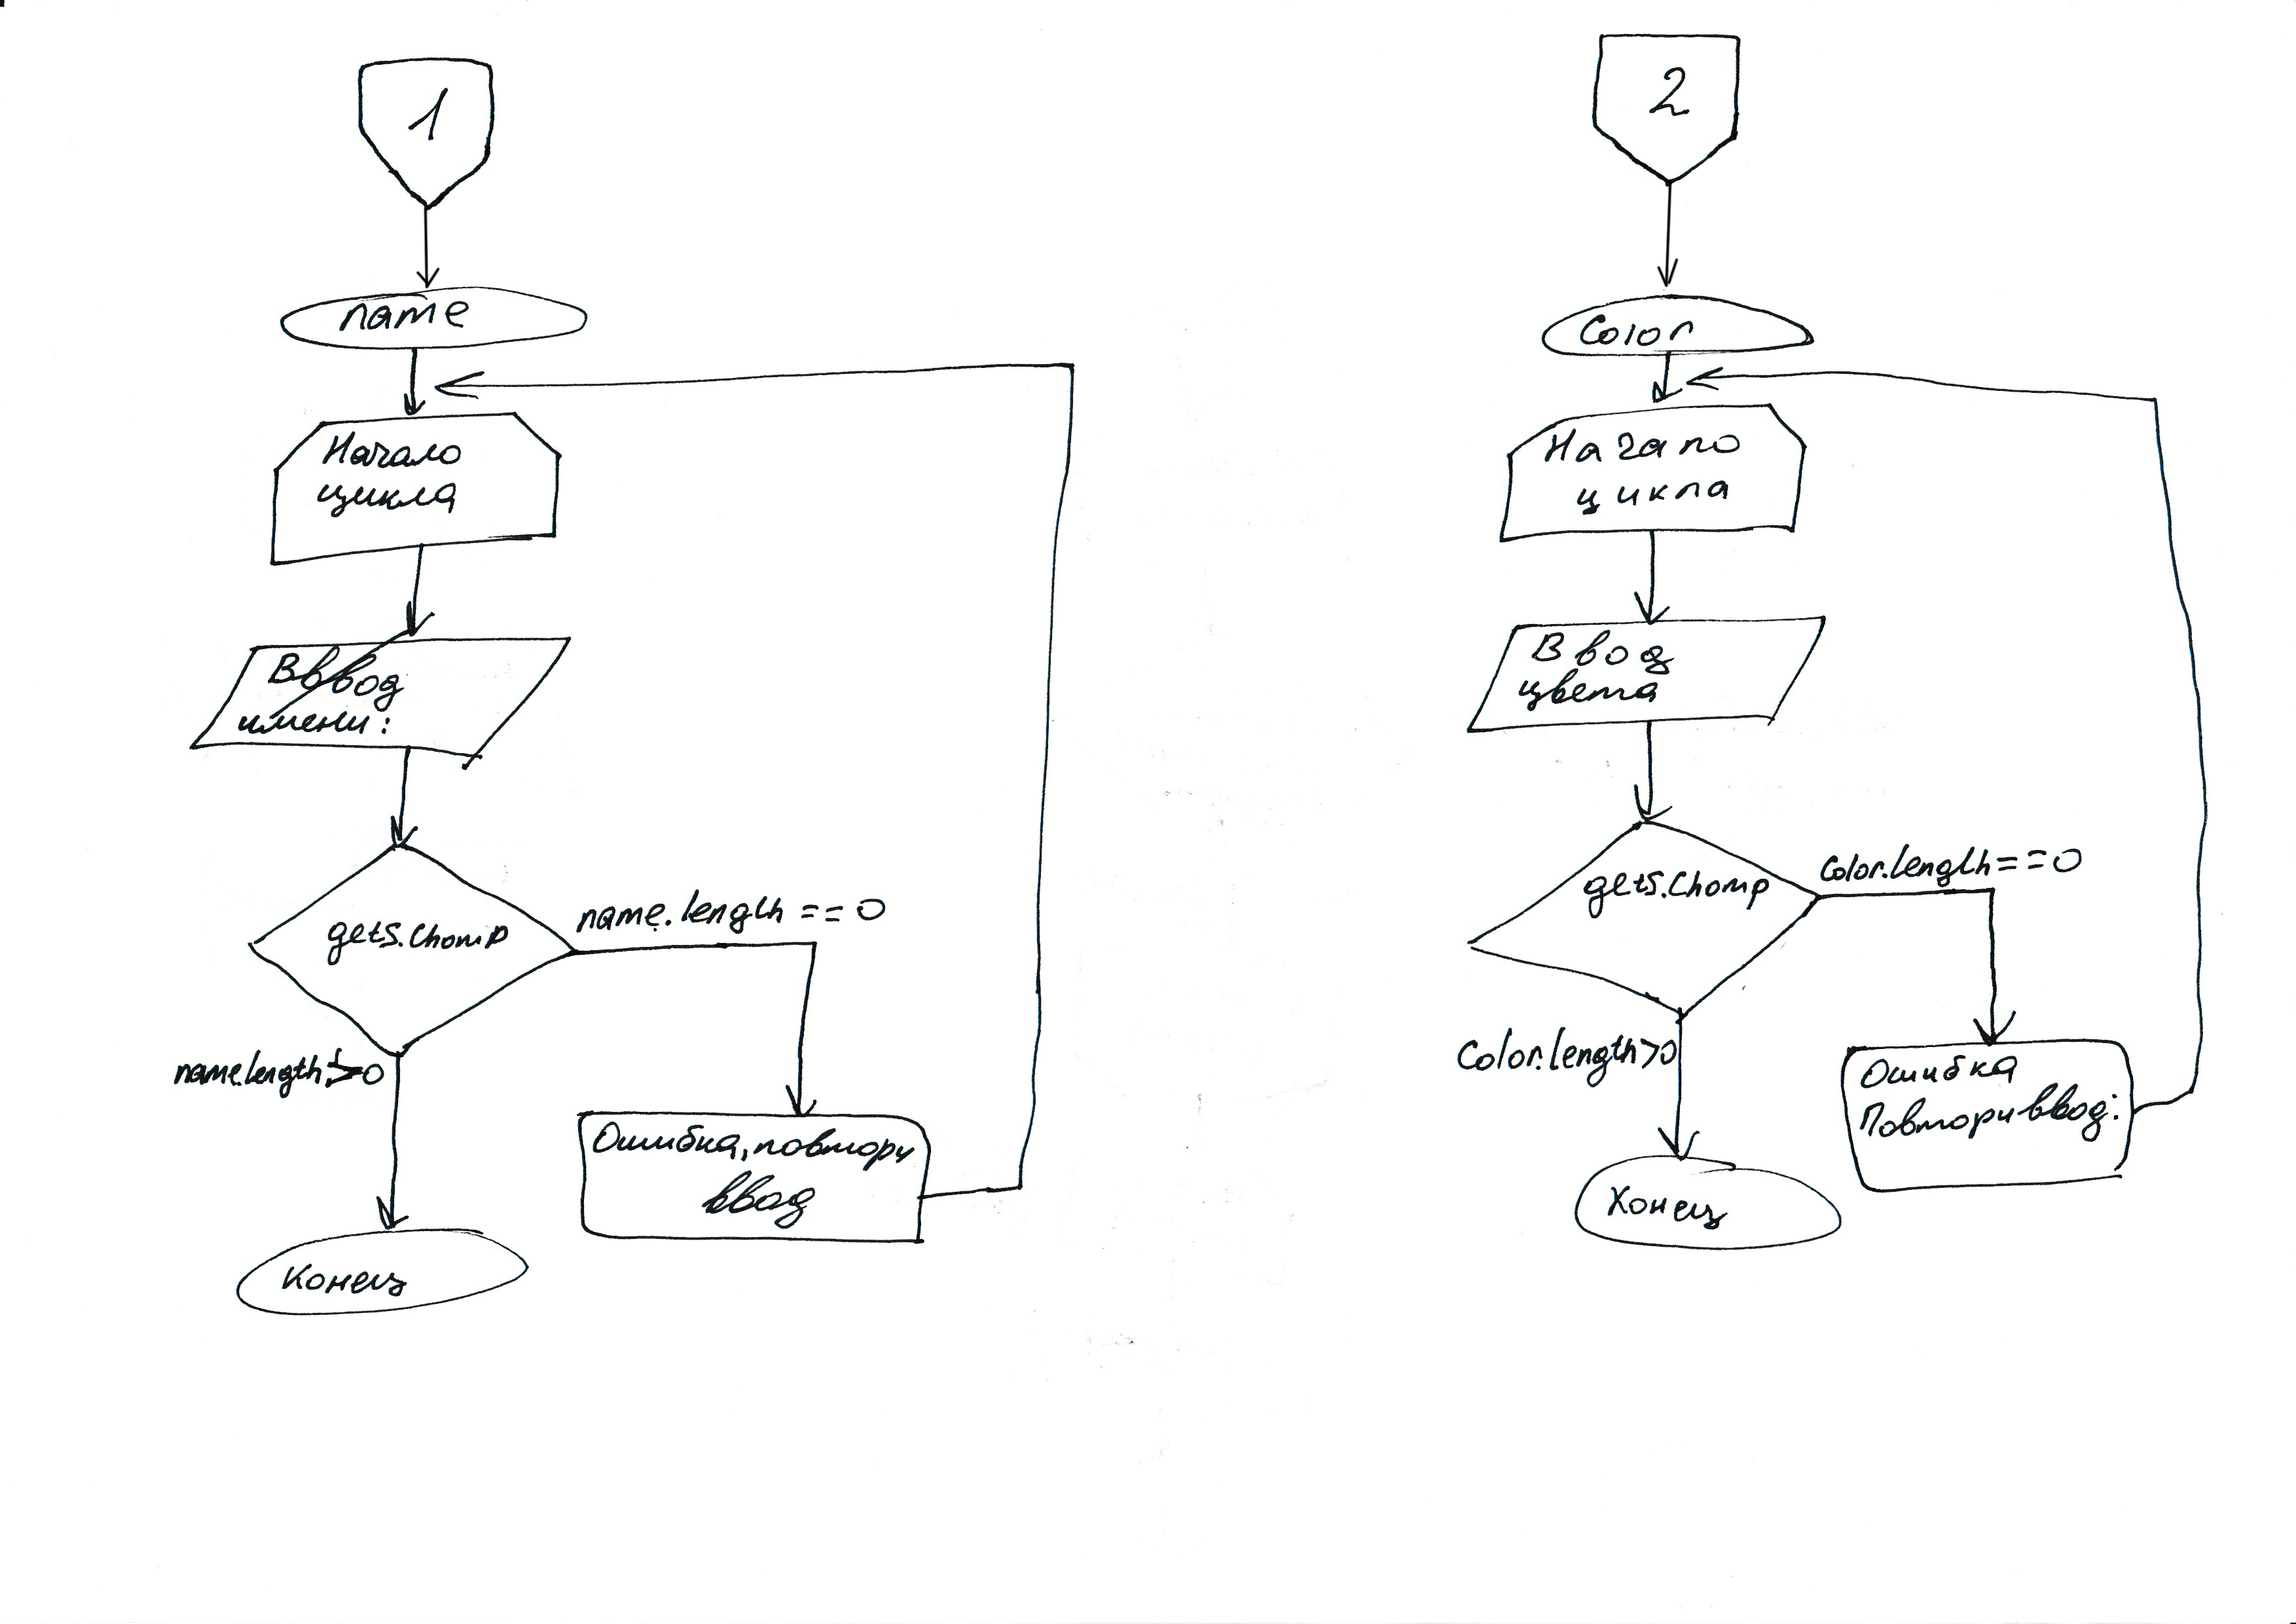 1
name
Начало
цикла
Вввод
имени:
gets.chomp
name.length == 0
name.length >0
Ошибка, повтори
ввод
Конец
2
Color
Начало
цикла
Ввод
цвета
gets.Chomp
Color.length==0
Color.length>0
Ошибка
Повтори ввод:
Конец